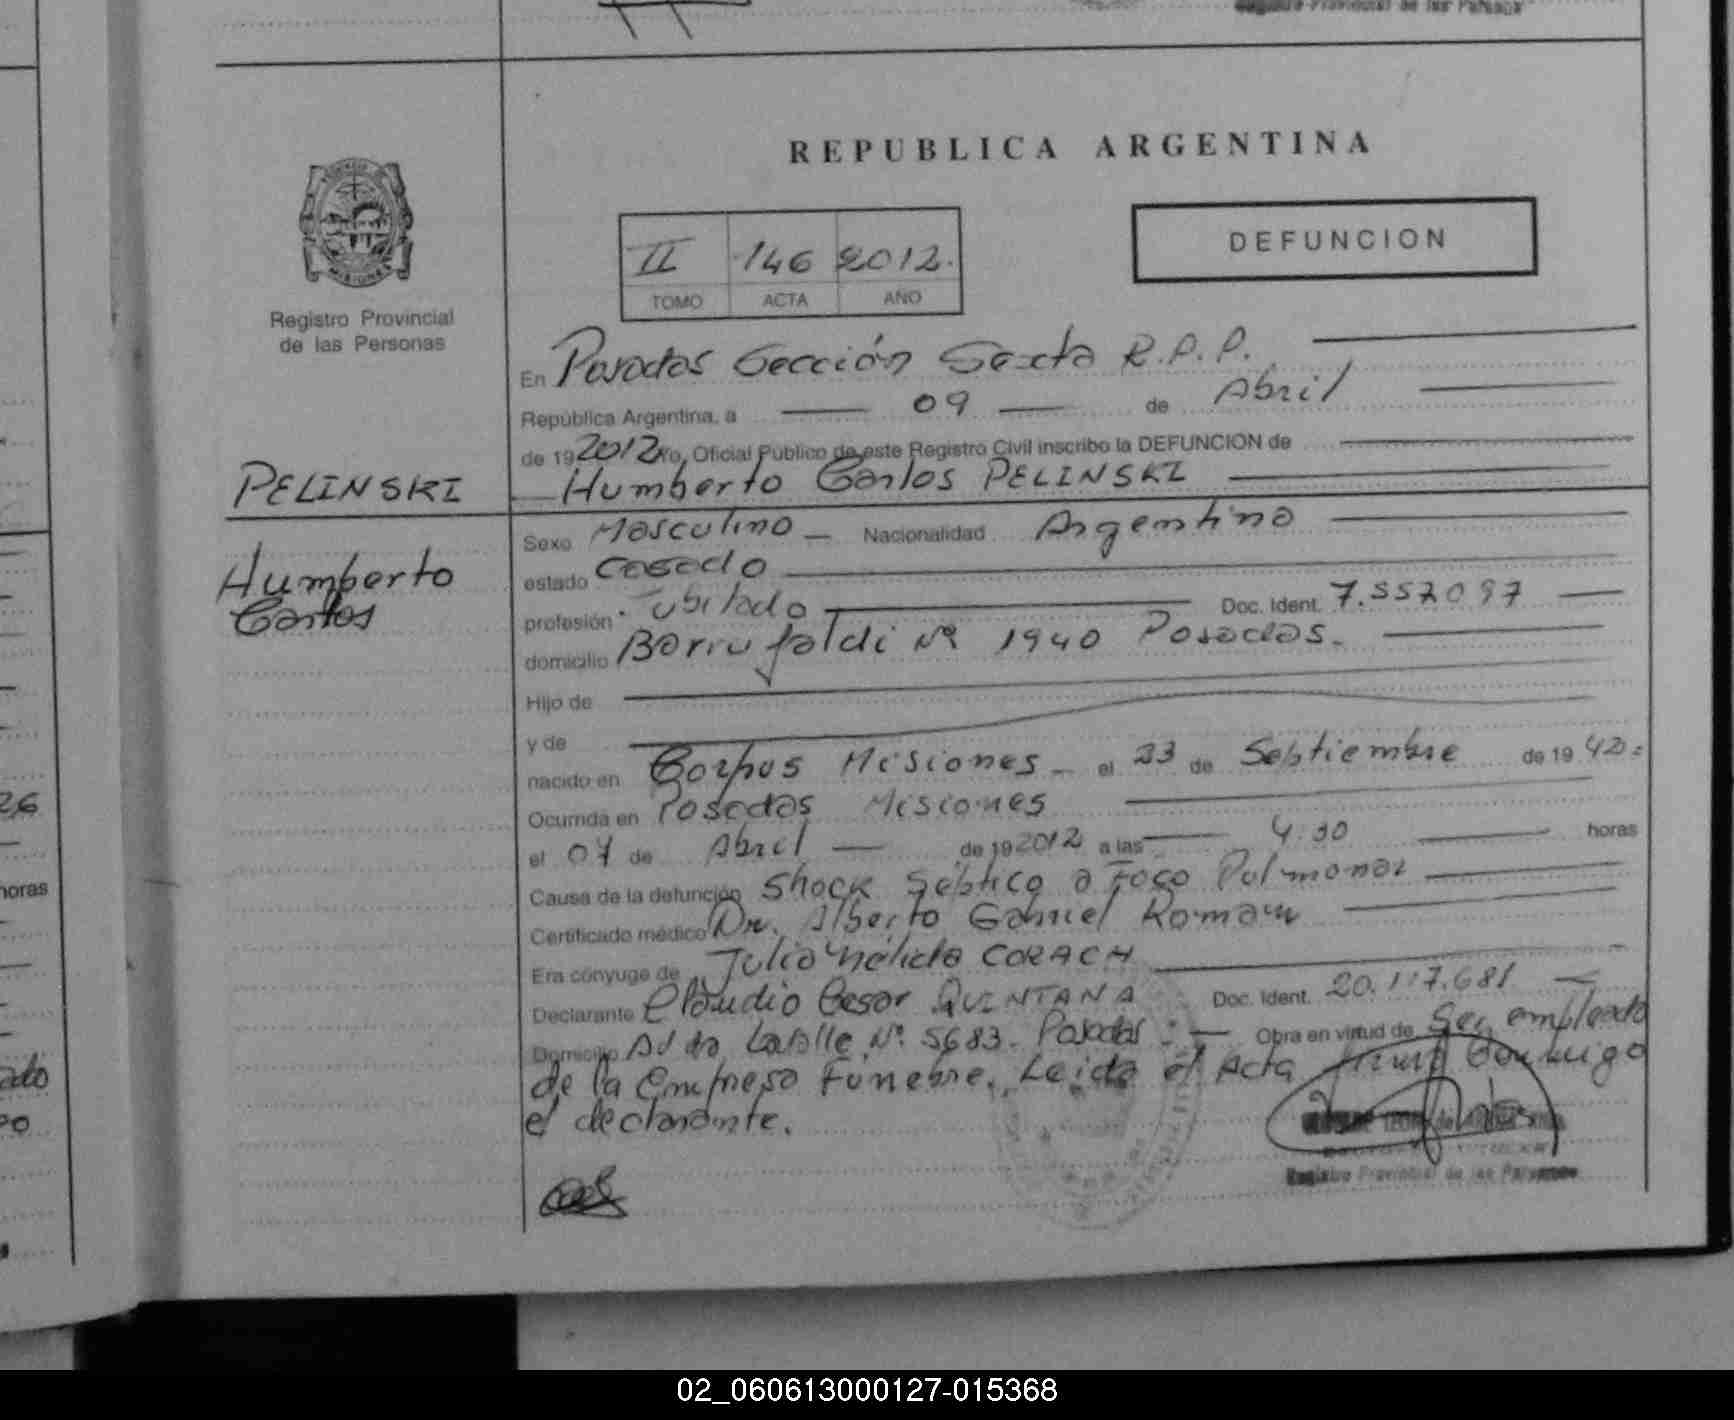 Registro Provincial de las Personas
REPUBLICA ARGENTINA
PROVINCIA DE
MISIONES
Registro Provincial
de las Personas
II 146 2012.
TOMO ACTA AÑO
DEFUNCION
En Posadas Sección Sexta R.P.P.
República Argentina, a 09 de Abril
de 19 2012 Yo, Oficial Público de este Registro Civil inscribo la DEFUNCION de
PELINSKI
Humberto Carlos PELINSKI
Humberto
Carlos
Sexo Masculino Nacionalidad Argentina
estado Casado
profesión Jubilado Doc. Ident. 7.557.097
domicilio Barrufaldi Nº 1940 Posadas.
Hijo de
y de
nacido en Corpus Misiones el 23 de Septiembre de 19 42.
Ocurrida en Posadas Misiones
el 07 de Abril de 19 2012 a las 4:30 horas
Causa de la defunción Shock Séptico a Foco Pulmonar
Certificado médico Dr. Alberto Gabriel Roman
Era cónyuge de Julia Nélida CORACH
Declarante Claudio Cesar QUINTANA Doc. Ident. 20.117.681
Domicilio Av. Lavalle Nº 5683. Posadas Obra en virtud de Ser empleado
de la Empresa Fúnebre. Leída el Acta firma Conmigo
el declarante.
Registro Provincial de las Personas
26
horas
02_060613000127-015368